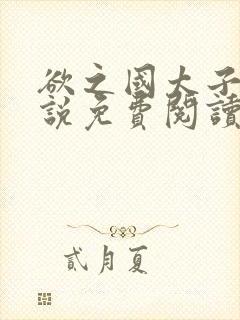 欲之國大子
說免費閱讀
貳月夏